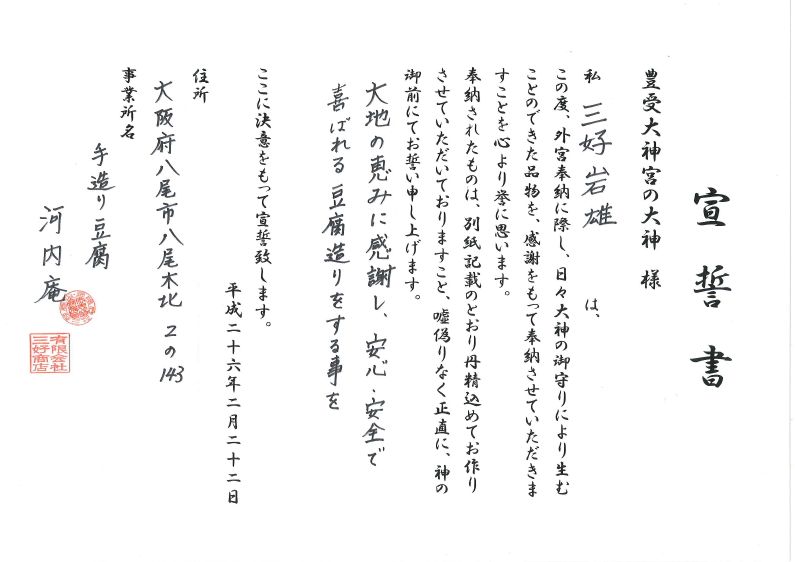 宣誓書
豊受大神宮の大神 様
私 三好岩雄 は、
この度、外宮奉納に際し、日々大神の御守りにより生む
ことのできた品物を、感謝をもって奉納させていただきま
すことを心より誉に思います。
奉納されたものは、別紙記載のとおり丹精込めてお作り
させていただいておりますこと、嘘偽りなく正直に、神の
御前にてお誓い申し上げます。
大地の恵みに感謝し、安心・安全で
喜ばれる豆腐造りをする事を
ここに決意をもって宣誓致します。
平成二十六年二月二十二日
住所
大阪府八尾市八尾木北 2の143
事業所名
手造り豆腐
河内庵
有限会社
三好商店